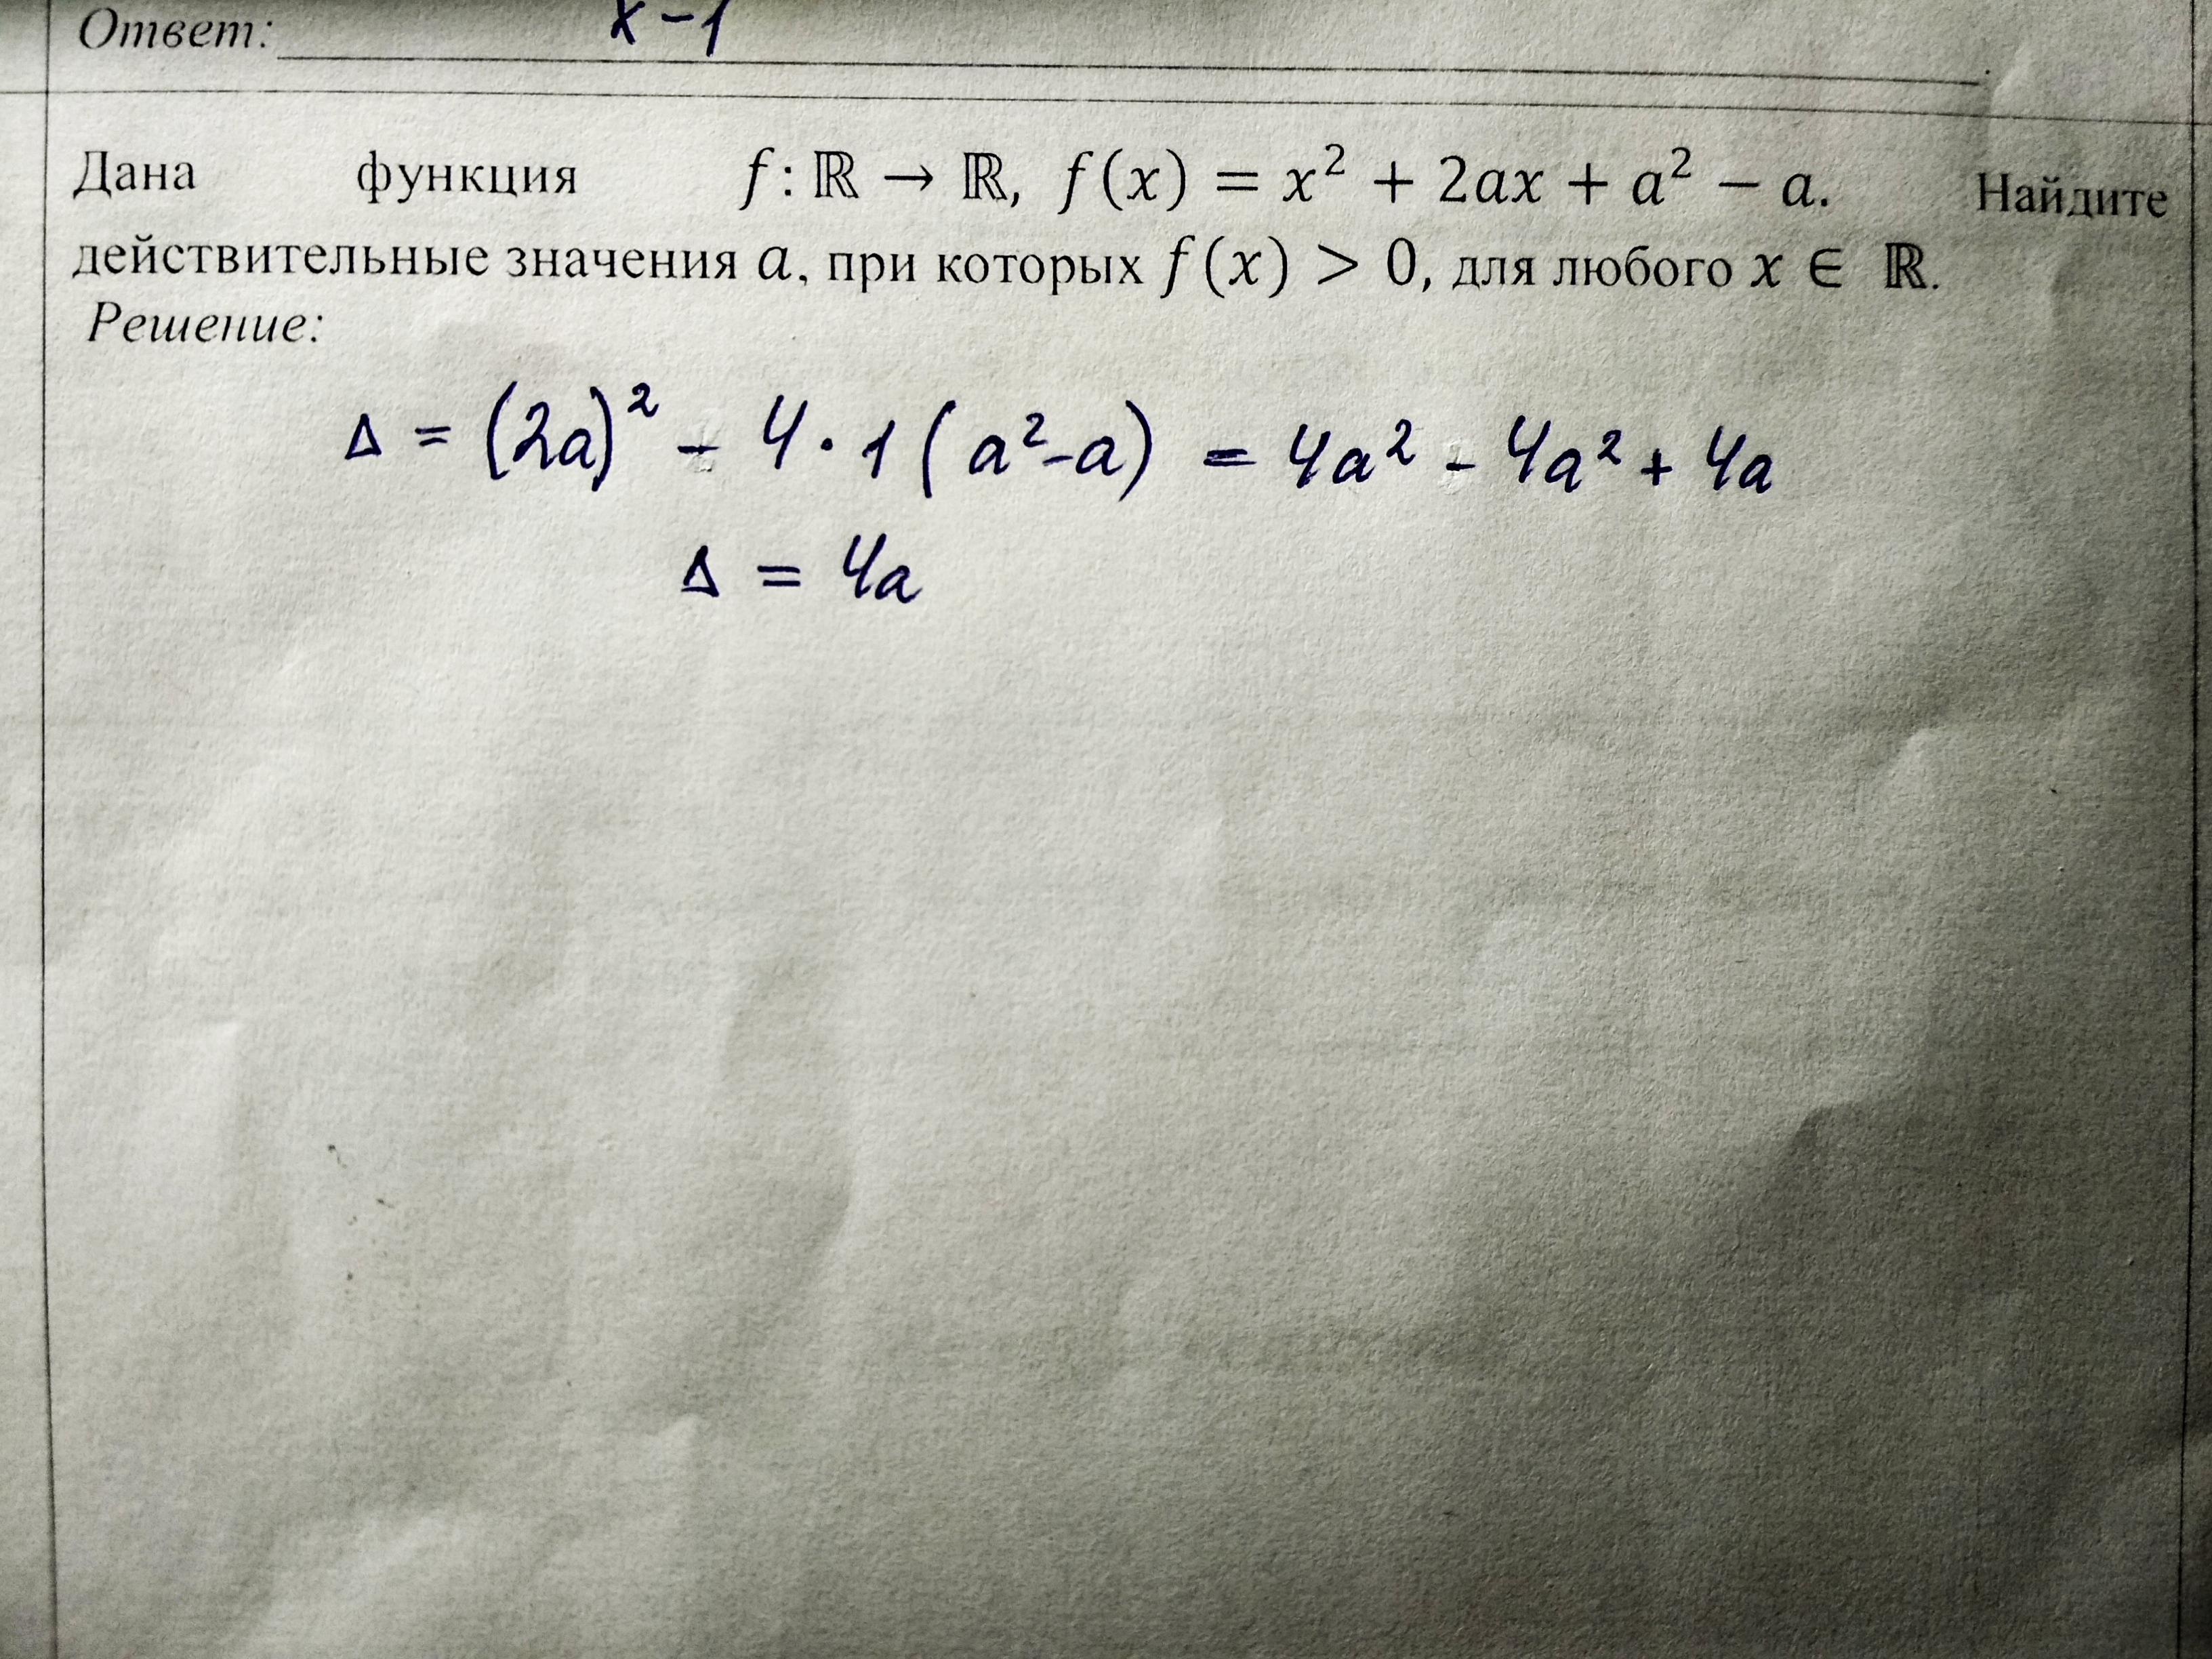 Ответ: x - 1
Дана функция f : ℝ → ℝ, f(x) = x² + 2ax + a² − a. Найдите
действительные значения a, при которых f(x) > 0, для любого x ∈ ℝ.
Решение:
Δ = (2a)² - 4 · 1 (a² - a) = 4a² - 4a² + 4a
Δ = 4a